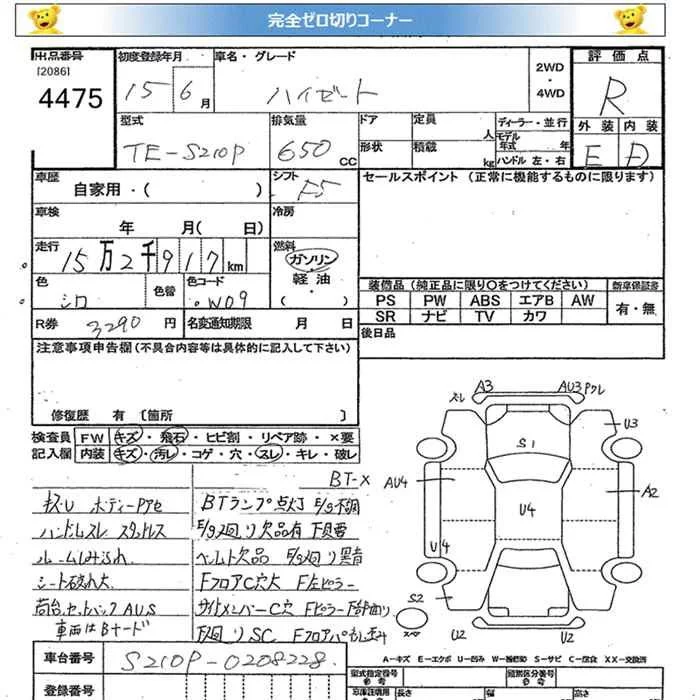 完全ゼロ切りコーナー
出品番号 初度登録年月 車名・グレード 2WD 評価点
[2086] ・
4475 15 6月 ハイゼート 4WD R
型式 排気量 ドア 定員 ディーラー・並行 外装 内装
人 モデル年式 年
TE-S210P 650 CC 形状 積載 kg ハンドル 左・右 E D
車歴 シフト セールスポイント (正常に機能するものに限ります)
自家用・( ) F5
車検 冷房
年 月( 日)
走行 燃料
15万2千917km ガソリン・軽油
色 色替 色コード 装備品 (純正品に限り〇をつけてください) 新車保証書
シロ W09 PS PW ABS エアB AW 有・無
R券 3290円 名変通知期限 月 日 SR ナビ TV カワ
注意事項申告欄(不具合内容等は具体的に記入して下さい) 後日品
修復歴 有 [箇所 ]
検査員 FW キズ・飛石・ヒビ割・リペア跡・×要
記入欄 内装 キズ・汚レ・コゲ・穴・スレ・キレ・破レ
BT-X
キズ・U ボディーPアセ BTランプ点灯 E/g不調
ハンドルスレ スタッドレス E/g廻り欠品有 下貝要
ルームしみ汚れ ベルト欠品 E/g廻り異音
シート破れ大 FフロアC穴大 F左ピラー
荷台.セットバックAUS サイドメンバーC穴 Fピラー下部曲り
車両はBナード 下廻りSC Fフロアパネル歪み
ズレ A3 AU3 Pクレ
U3
S1
AU4 A2
U4
U4
S2
スペア U2 U2
A-キズ E-エクボ U-凹み W-補修跡 S-サビ C-腐食 XX-交換済
車台番号 S210P-0208228
登録番号 型式指定番号 類別区分番号
長さ 幅 高さ